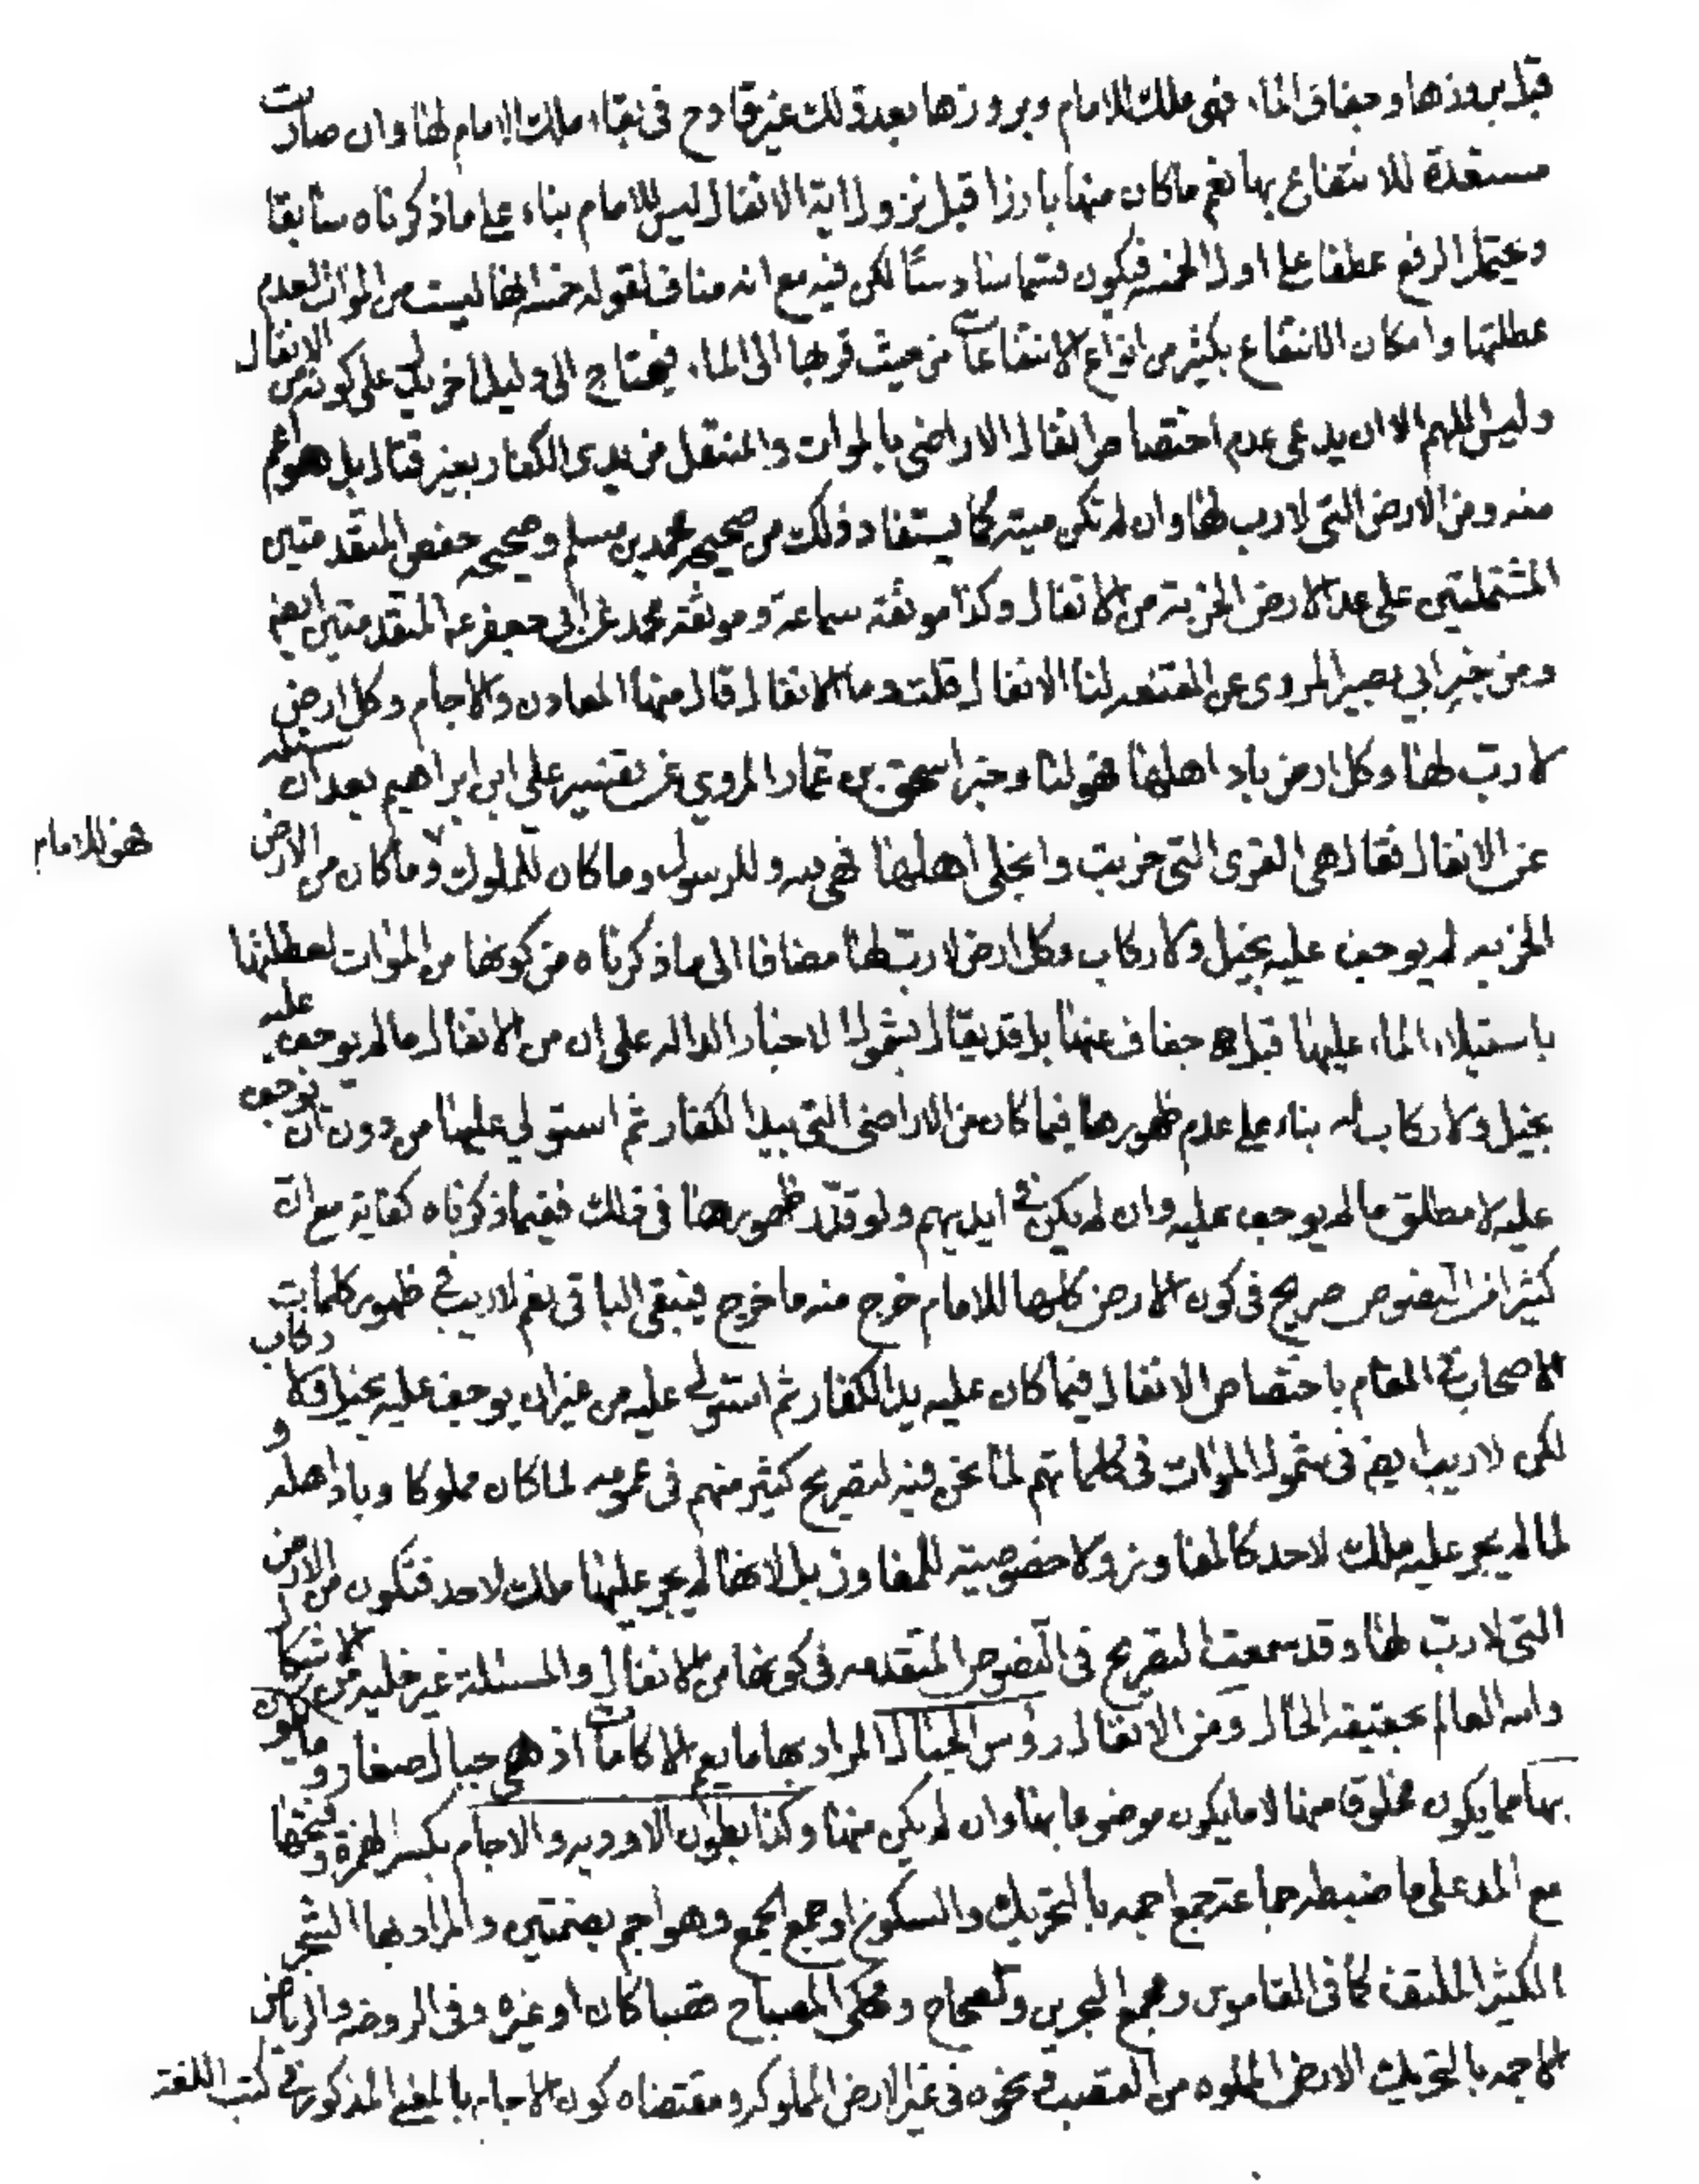 قبل بروزها وجفاف الماء فهي ملك للامام وبروزها بعد ذلك غير قادح في بقاء ملك الامام لها وان صارت
مستعدة للانتفاع بها نعم ما كان منها بارزا قبل نزول اية الانفال ليس للامام بناء على ما ذكرناه سابقا
ويحتمل الرفع عطفا على اول الخمسة فيكون قسما سادسا لكن فيه مع انه مناف لقوله خمسة انها ليست من الموات لعدم
عطلتها وامكان الانتفاع بكثير من انواع الانتفاعات من حيث قربها الى الماء فيحتاج الى دليل اخر يدل على كونه من الانفال
وليس اللهم الا ان يدعى عدم اختصاص انفال الاراضي بالموات والمنتقل من يدي الكفار بغير قتال بل هو اعم
منه ومن الارض التي لا رب لها وان لم تكن ميتة كما يستفاد ذلك من صحيحه محمد بن مسلم وصحيحه حفص المتقدمتين
المشتملتين على عد الارض الخربة من الانفال وكذا موثقه سماعة وموثقه محمد عن ابي جعفر ع المتقدمتين ايضم
ومن خبر ابي بصير المروي عن المقنعه لنا الانفال قلت وما الانفال قال منها المعادن والاجام وكل ارض
لا رب لها وكل ارض باد اهلها فهو لنا وخبر اسحق بن عمار المروي عن تفسير علي ابن ابراهيم بعد ان سئله
عن الانفال فقال هي القرى التي خربت وانجلى اهلها فهي لله وللرسول وما كان للملوك وما كان من الارض
فهو للامام
الخربه لم يوجف عليه بخيل ولا ركاب وكل ارض لا رب لها مضافا الى ما ذكرناه من كونها من الموات لعطلتها
باستيلاء الماء عليها قبل جفاف عنها بل قد يقال بشمول الاخبار الداله على ان من الانفال ما لم يوجف عليه
بخيل ولا ركاب له بناء على عدم ظهورها فيما كان من الاراضي التي بيد الكفار ثم استولي عليها من دون ان يوجف
عليه لا مطلق ما لم يوجف عليه وان لم يكن في ايديهم ولو قدر ظهورها في ذلك ففيما ذكرناه كفاية مع ان
كثيرا من النصوص صريح في كون الارض كلها للامام خرج منه ما خرج فيبقى الباقي نعم لا ريب في ظهور كلمات
الاصحاب في المقام باختصاص الانفال فيما كان عليه يد الكفار ثم استولي عليه من غير ان يوجف عليه بخيل ولا ركاب
لكن لا ريب ايضم في شمول الموات في كلماتهم لما نحن فيه لتصريح كثير منهم في عمومه لما كان مملوكا وباد اهله و
لما لم يجر عليه ملك لاحد كالمفاوز ولا خصوصية للمفاوز بل لانها لم يجر عليها ملك لاحد فتكون من الارض
التي لا رب لها وقد سمعت التصريح في النصوص المتقدمه في كونها من الانفال والمسئلة غير خليه من الاشكال
والله العالم بحقيقه الحال ومن الانفال رؤس الجبال المراد بها ما يعم الاكامات اذ هي جبال صغار وما يكون
بها مما يكون مخلوقا منها لا ما يكون موضوعا بها وان لم يكن منها وكذا بطون الاوديه والاجام بكسر الهمزة وفتحها
مع المد على ما ضبطه جماعة جمع اجمه بالتحريك والسكون او جمع الجمع وهو اجم بضمتين والمراد بها الشجر
الكثير الملتف كما في القاموس ومجمع البحرين والصحاح ومحكى المصباح قصبا كان او غيره وفي الروضه والرياض
الاجمه بالتحريك الارض المملوه من القصب ونحوه في غير الارض المملوكه ومقتضاه كون الاجام بالمعنى المذكور في كتب اللغة